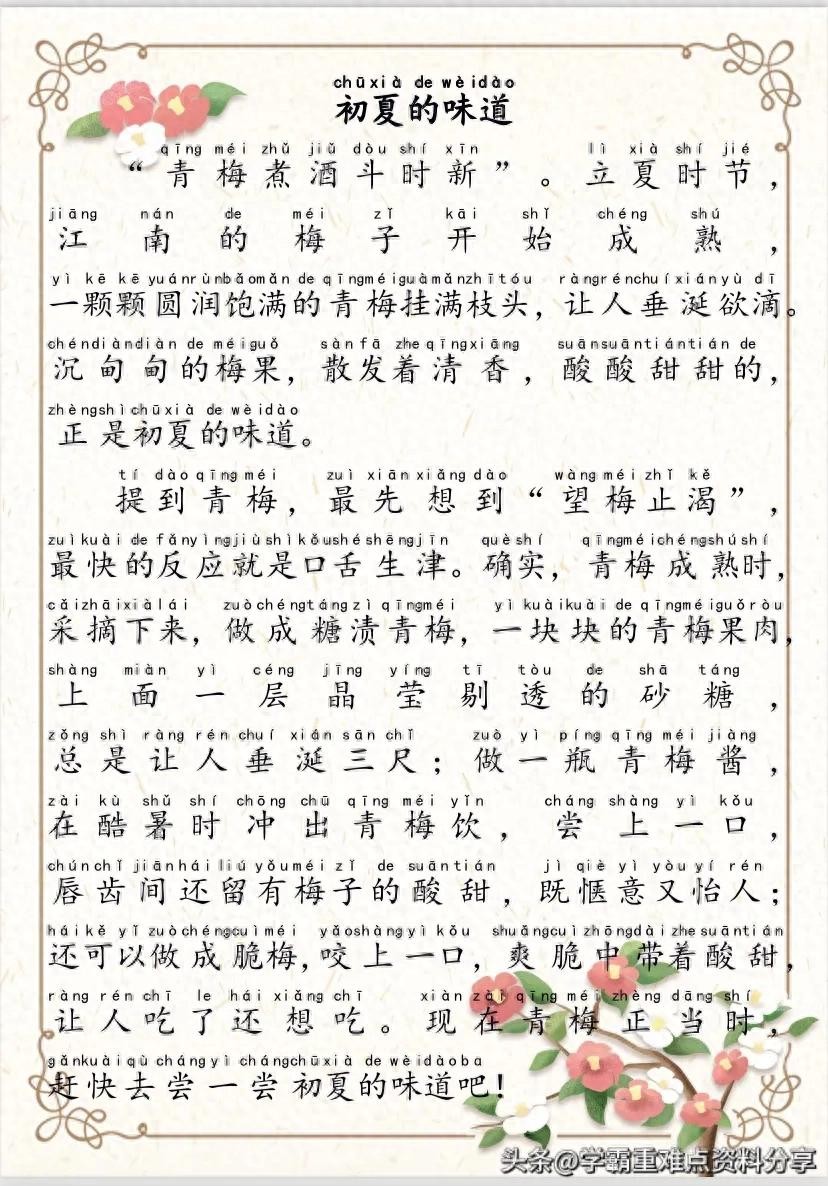 chūxià de wèidào
初夏的味道
qīng méi zhǔ jiǔ dòu shí xīn lì xià shí jié
“青梅煮酒斗时新”。立夏时节，
jiāng nán de méi zǐ kāi shǐ chéng shú
江南的梅子开始成熟，
yì kē kē yuánrùnbǎomǎn de qīngméiguàmǎnzhītóu ràngrénchuíxiányù dī
一颗颗圆润饱满的青梅挂满枝头，让人垂涎欲滴。
chéndiàndiàn de méiguǒ sànfā zheqīngxiāng suānsuāntiántián de
沉甸甸的梅果，散发着清香，酸酸甜甜的，
zhèngshìchūxià de wèidào
正是初夏的味道。
tí dàoqīngméi zuì xiānxiǎngdào wàngméizhǐ kě
提到青梅，最先想到“望梅止渴”，
zuìkuài de fǎnyìngjiùshìkǒushéshēngjīn quèshí qīngméichéngshúshí
最快的反应就是口舌生津。确实，青梅成熟时，
cǎizhāixiàlái zuòchéngtángzì qīngméi yì kuàikuài de qīngméiguǒròu
采摘下来，做成糖渍青梅，一块块的青梅果肉，
shàng miàn yì céng jīng yíng tī tòu de shā táng
上面一层晶莹剔透的砂糖，
zǒng shì ràng rén chuí xián sān chǐ zuò yì píng qīng méi jiàng
总是让人垂涎三尺；做一瓶青梅酱，
zài kù shǔ shí chōng chū qīng méi yǐn cháng shàng yì kǒu
在酷暑时冲出青梅饮，尝上一口，
chúnchǐ jiānhái liú yǒuméi zǐ de suāntián jì qiè yì yòu yí rén
唇齿间还留有梅子的酸甜，既惬意又怡人；
háikě yǐ zuòchéngcuìméi yǎoshàngyì kǒu shuǎngcuìzhōngdàizhesuāntián
还可以做成脆梅，咬上一口，爽脆中带着酸甜，
ràng rén chī le hái xiǎng chī xiàn zài qīng méi zhèng dāng shí
让人吃了还想吃。现在青梅正当时，
gǎnkuàiqù chángyì chángchūxià de wèidàoba
赶快去尝一尝初夏的味道吧！
头条@学霸重难点资料分享